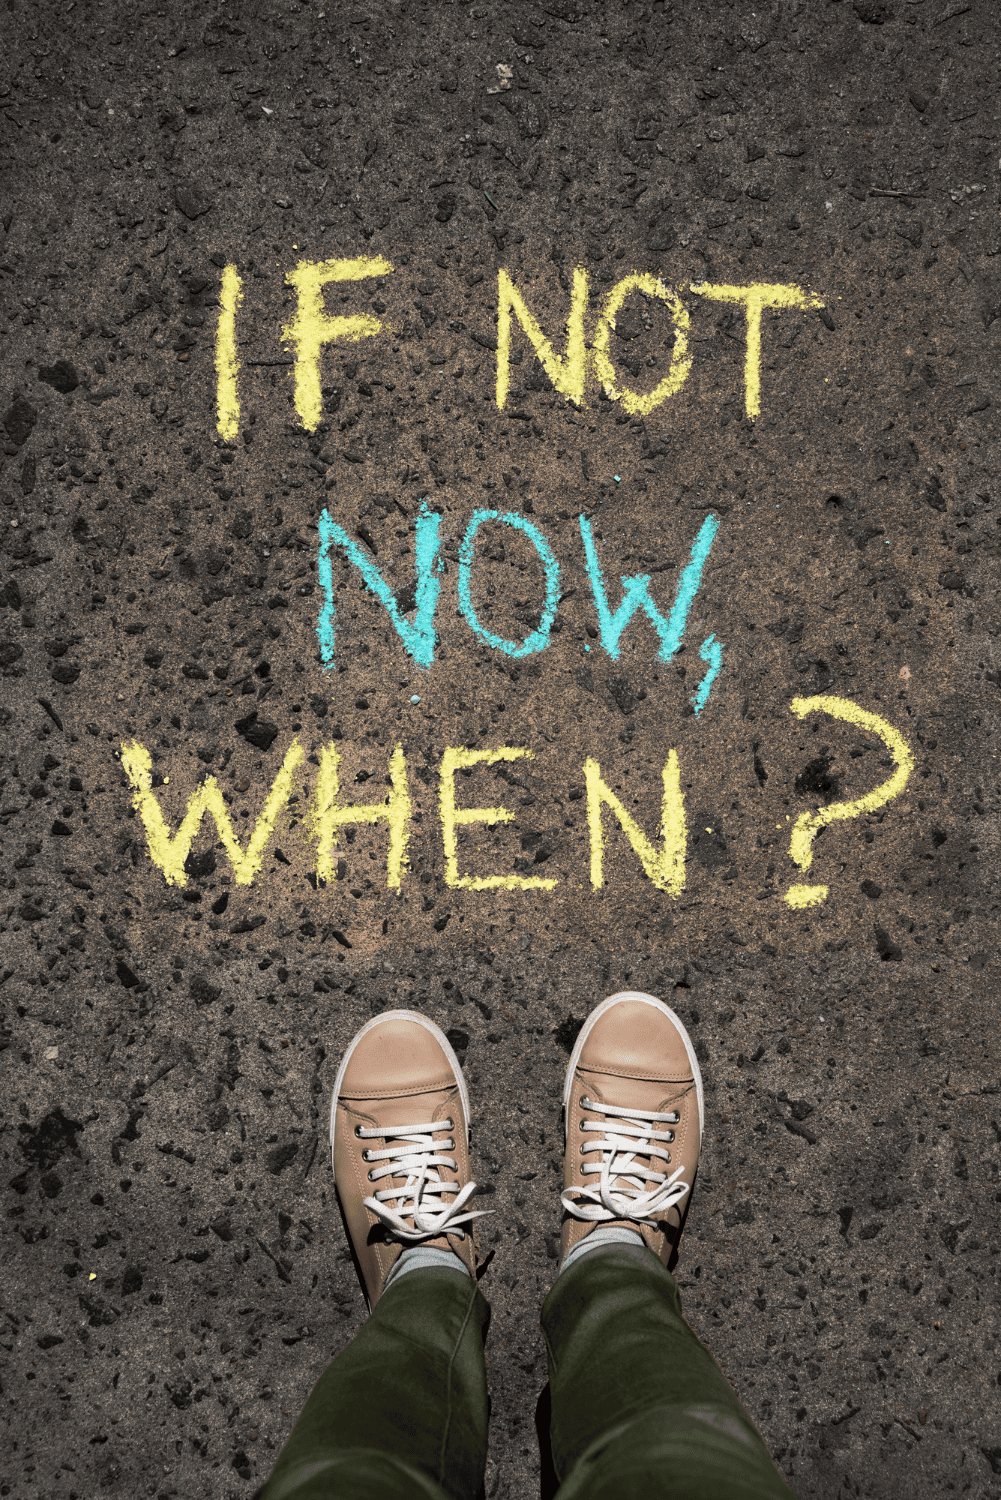 IF NOT
NOW,
WHEN?